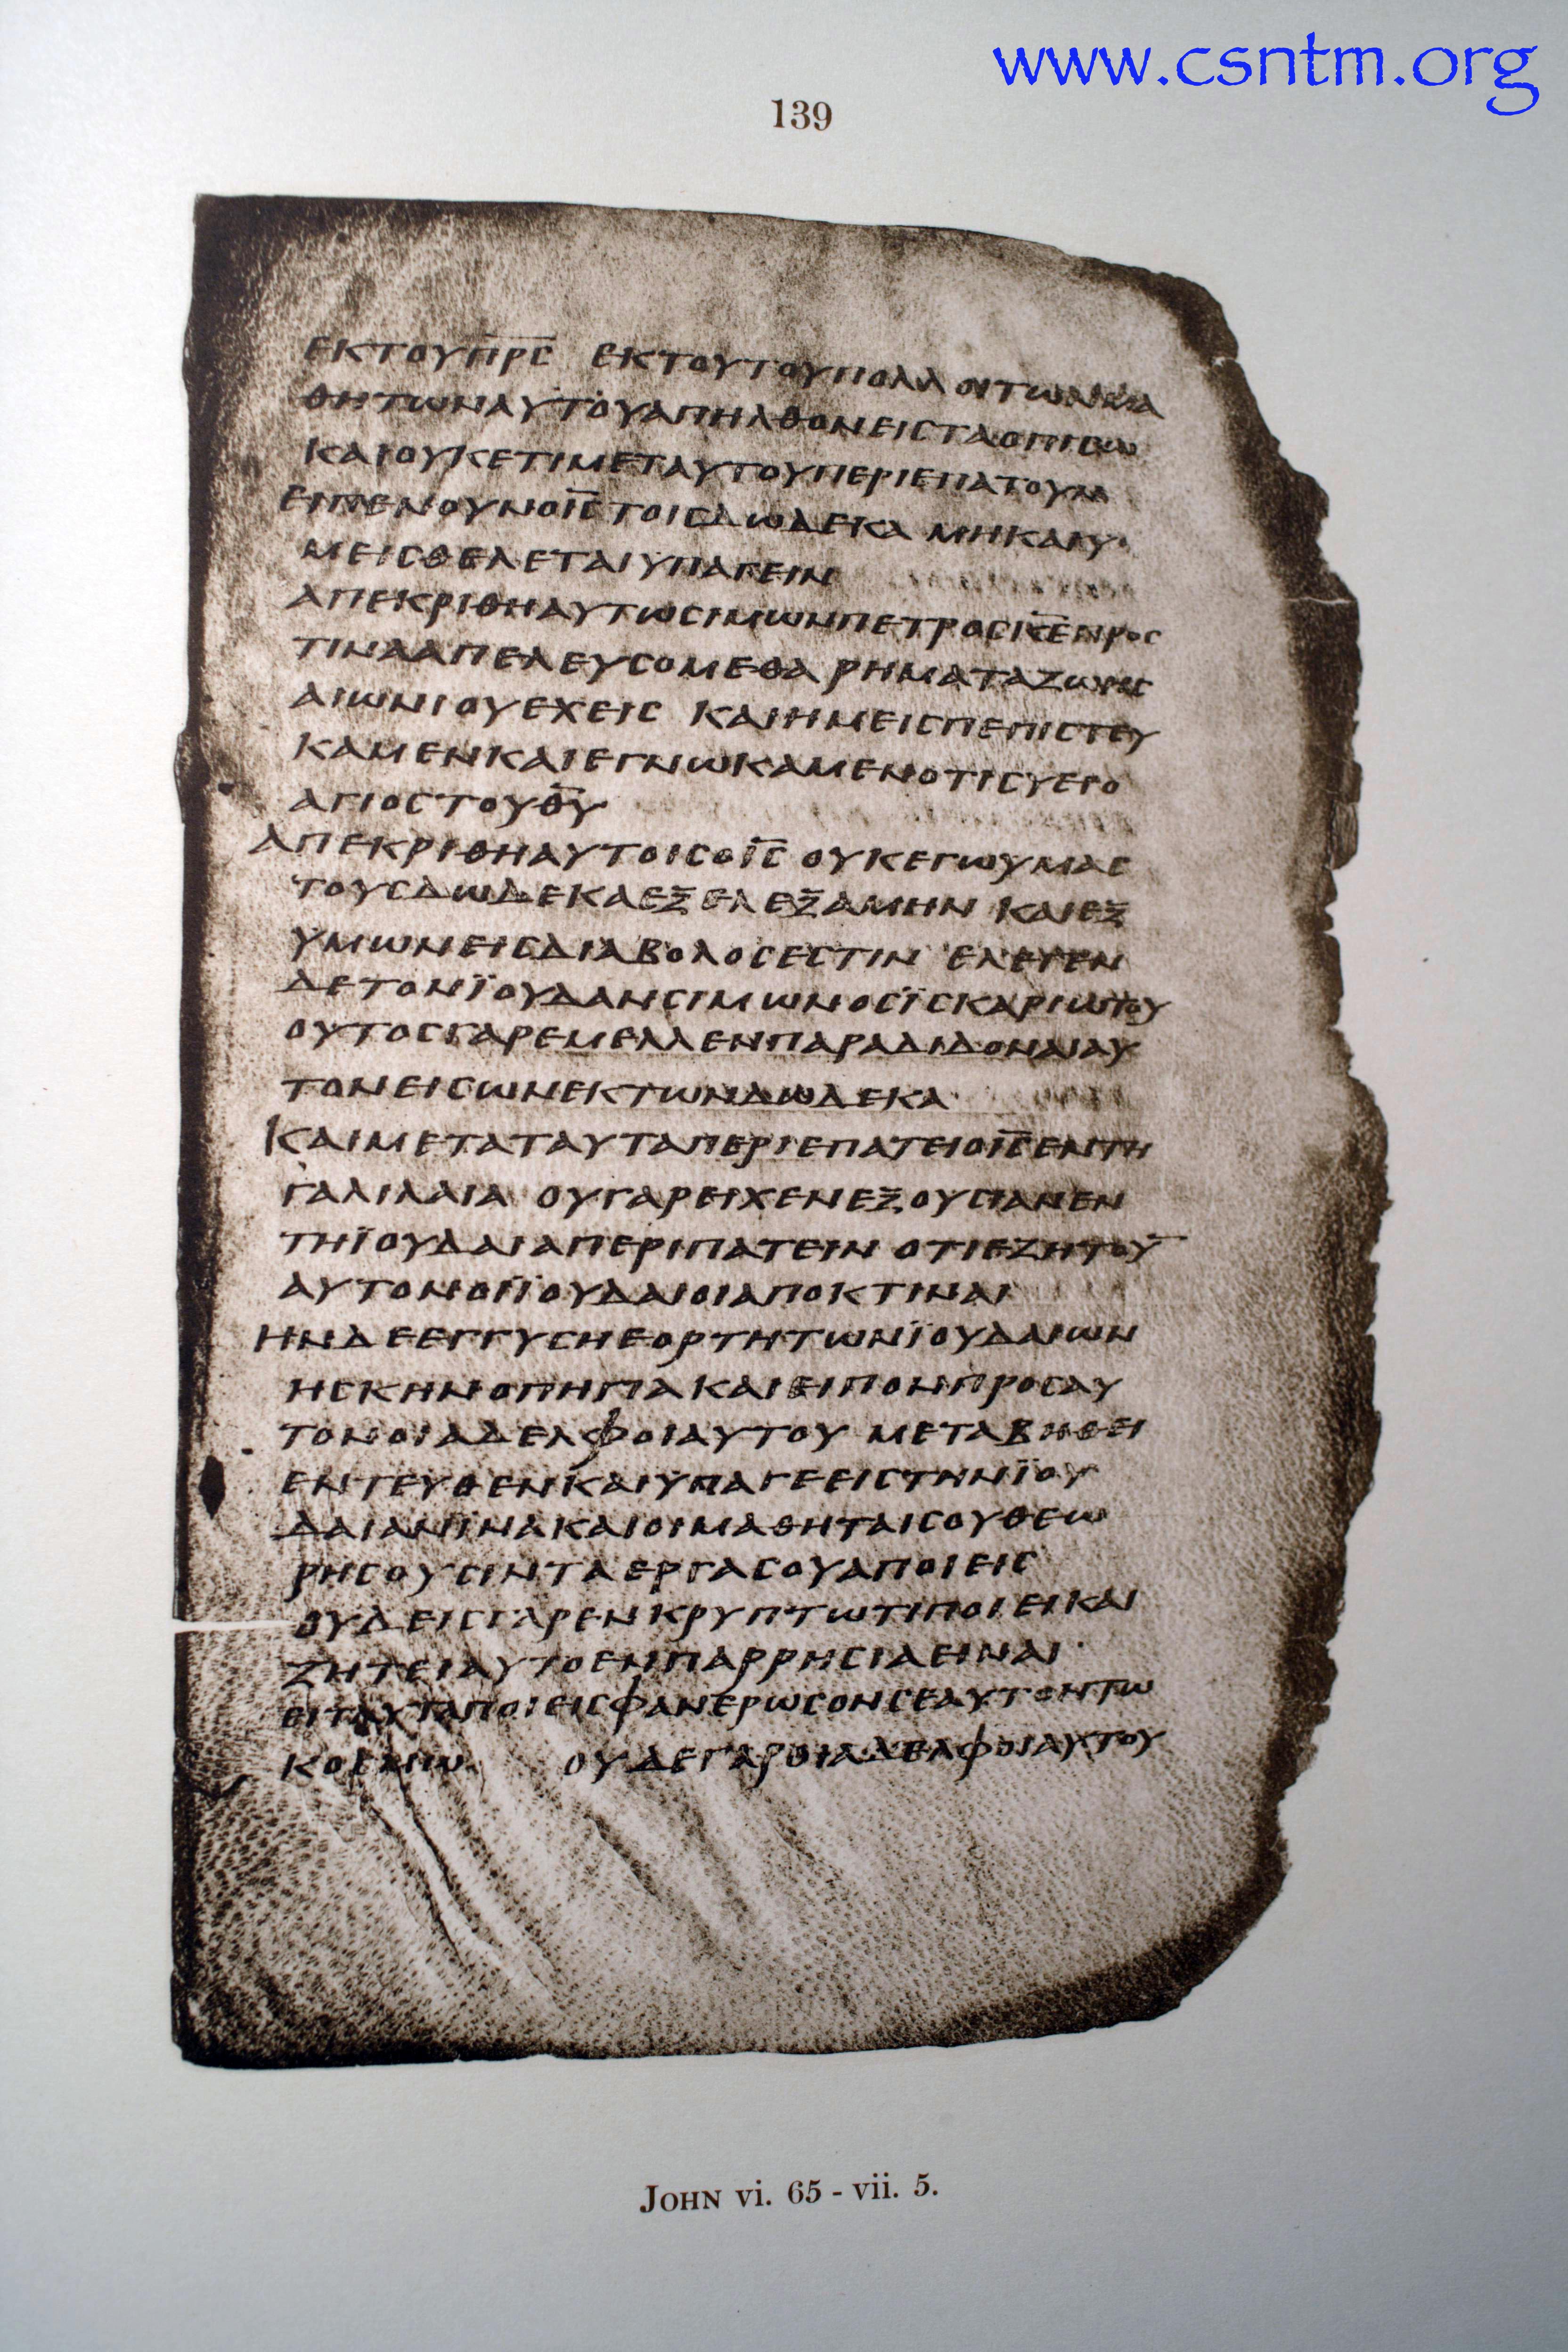 www.csntm.org
139
ΕΚΤΟΥΠ̅Ρ̅Ϲ̅ ΕΚΤΟΥΤΟΥΠΟΛΛΟΙΤΩΝΜΑ
ΘΗΤΩΝΑΥΤΟΥΑΠΗΛΘΟΝΕΙϹΤΑΟΠΙϹΩ
ΚΑΙΟΥΚΕΤΙΜΕΤΑΥΤΟΥΠΕΡΙΕΠΑΤΟΥΝ
ΕΙΠΕΝΟΥΝΟΙ̅Ϲ̅ΤΟΙϹΔΩΔΕΚΑ ΜΗΚΑΙΥ
ΜΕΙϹΘΕΛΕΤΑΙΥΠΑΓΕΙΝ
ΑΠΕΚΡΙΘΗΑΥΤΩϹΙΜΩΝΠΕΤΡΟϹΚ̅Ε̅ΠΡΟϹ
ΤΙΝΑΑΠΕΛΕΥϹΟΜΕΘΑ ΡΗΜΑΤΑΖΩΗϹ
ΑΙΩΝΙΟΥΕΧΕΙϹ ΚΑΙΗΜΕΙϹΠΕΠΙϹΤΕΥ
ΚΑΜΕΝΚΑΙΕΓΝΩΚΑΜΕΝΟΤΙϹΥΕΙΟ
ΑΓΙΟϹΤΟΥΘ̅Υ̅
ΑΠΕΚΡΙΘΗΑΥΤΟΙϹΟΙ̅Ϲ̅ ΟΥΚΕΓΩΥΜΑϹ
ΤΟΥϹΔΩΔΕΚΑΕΞΕΛΕΞΑΜΗΝ ΚΑΙΕΞ
ΥΜΩΝΕΙϹΔΙΑΒΟΛΟϹΕϹΤΙΝ ΕΛΕΓΕΝ
ΔΕΤΟΝΪΟΥΔΑΝϹΙΜΩΝΟϹΪϹΚΑΡΙΩΤΟΥ
ΟΥΤΟϹΓΑΡΕΜΕΛΛΕΝΠΑΡΑΔΙΔΟΝΑΙΑΥ
ΤΟΝΕΙϹΩΝΕΚΤΩΝΔΩΔΕΚΑ
ΚΑΙΜΕΤΑΤΑΥΤΑΠΕΡΙΕΠΑΤΕΙΟΙ̅Ϲ̅ΕΝΤΗ
ΓΑΛΙΛΑΙΑ ΟΥΓΑΡΕΙΧΕΝΕΞΟΥϹΙΑΝΕΝ
ΤΗΪΟΥΔΑΙΑΠΕΡΙΠΑΤΕΙΝ ΟΤΙΕΖΗΤΟΥ̅
ΑΥΤΟΝΟΙΪΟΥΔΑΙΟΙΑΠΟΚΤΙΝΑΙ
ΗΝΔΕΕΓΓΥϹΗΕΟΡΤΗΤΩΝΪΟΥΔΑΙΩΝ
ΗϹΚΗΝΟΠΗΓΙΑ ΚΑΙΕΙΠΟΝΠΡΟϹΑΥ
ΤΟΝΟΙΑΔΕΛΦΟΙΑΥΤΟΥ ΜΕΤΑΒΗΘΕΙ
ΕΝΤΕΥΘΕΝΚΑΙΥΠΑΓΕΕΙϹΤΗΝΪΟΥ
ΔΑΙΑΝΪΝΑΚΑΙΟΙΜΑΘΗΤΑΙϹΟΥΘΕΩ
ΡΗϹΟΥϹΙΝΤΑΕΡΓΑϹΟΥΑΠΟΙΕΙϹ
ΟΥΔΕΙϹΓΑΡΕΝΚΡΥΠΤΩΤΙΠΟΙΕΙΚΑΙ
ΖΗΤΕΙΑΥΤΟΕΝΠΑΡΡΗϹΙΑΕΙΝΑΙ
ΕΙΤΑΥΤΑΠΟΙΕΙϹΦΑΝΕΡΩϹΟΝϹΕΑΥΤΟΝΤΩ
ΚΟϹΜΩ ΟΥΔΕΓΑΡΟΙΑΔΕΛΦΟΙΑΥΤΟΥ
JOHN vi. 65 - vii. 5.